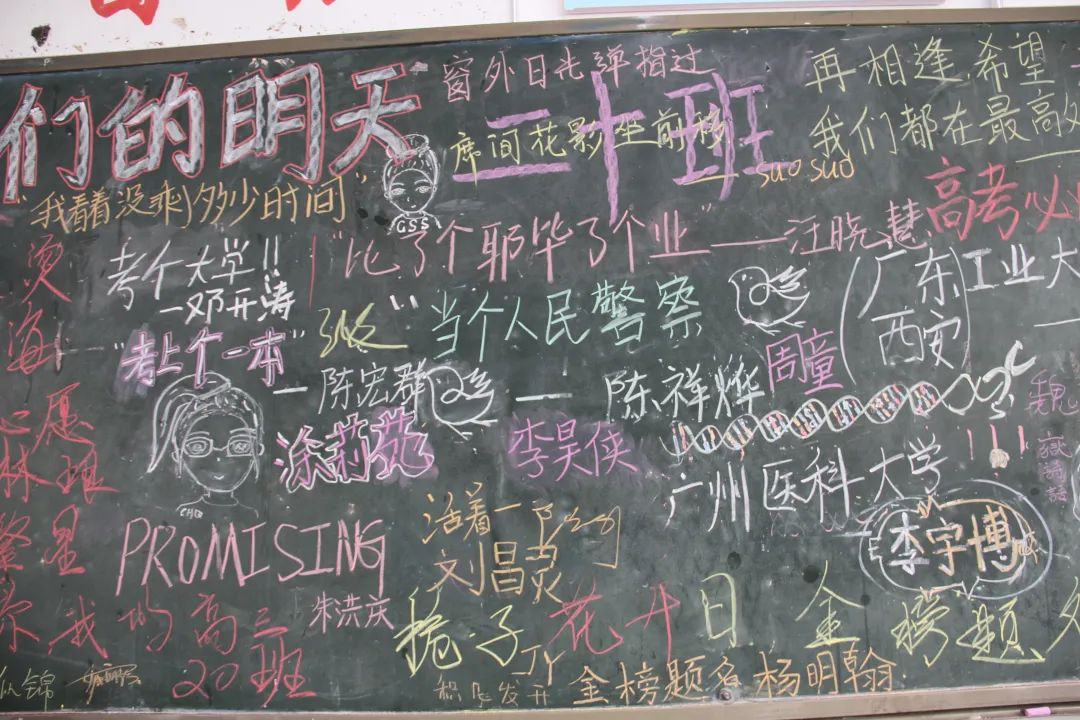 们的明天
窗外日光弹指过
席间花影坐前移
二十班
suo suo
再相逢,希望
我们都在最高处
"我看着没乘多少时间"
GSS
高考必
"比了个耶毕了个业"——汪晓慧
烫
海
考个大学!!
—邓开涛
"考上个一本"
—陈宏群
"当个人民警察
—陈祥烨
周童
(广东工业大
西安
心愿
林琅
涂莉苑
李昊侠
广州医科大学
!!!
魏
CHQ
繁星
PROMISING
朱洪庆
活着一
刘昌灵
李宇博
你我的高三
20班
栀子花开日金榜题名
JY
似锦
金榜题名 杨明翰